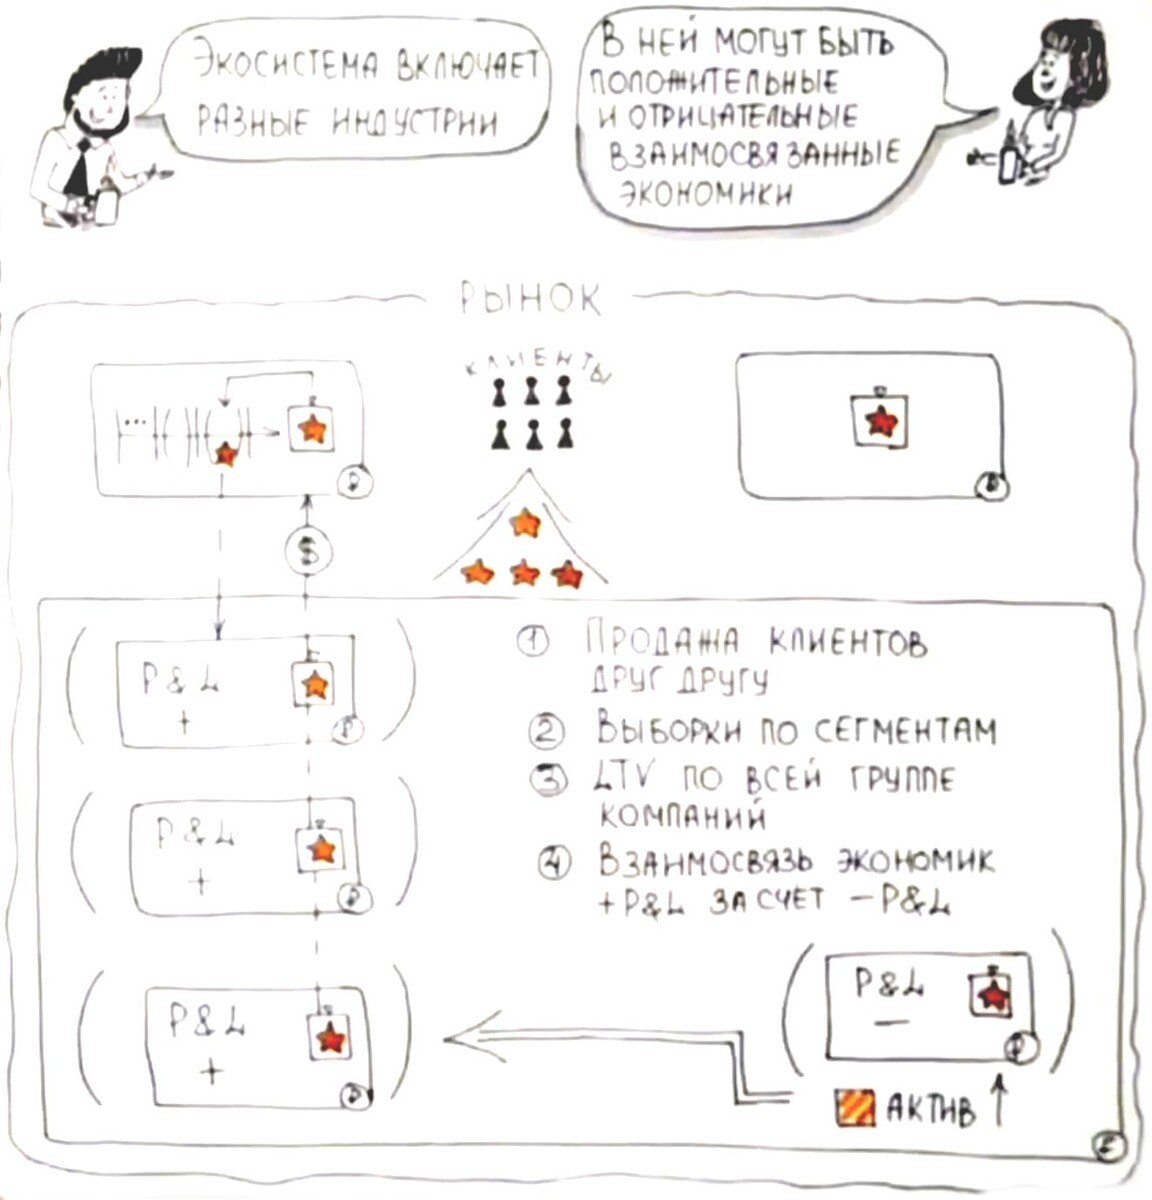 ЭКОСИСТЕМА ВКЛЮЧАЕТ
РАЗНЫЕ ИНДУСТРИИ
В НЕЙ МОГУТ БЫТЬ
ПОЛОЖИТЕЛЬНЫЕ
И ОТРИЦАТЕЛЬНЫЕ
ВЗАИМОСВЯЗАННЫЕ
ЭКОНОМИКИ
РЫНОК
КЛИЕНТЫ
...
P
P
$
P&L
+
P
P&L
+
P
P&L
+
P
① ПРОДАЖА КЛИЕНТОВ
ДРУГ ДРУГУ
② ВЫБОРКИ ПО СЕГМЕНТАМ
③ LTV ПО ВСЕЙ ГРУППЕ
КОМПАНИЙ
④ ВЗАИМОСВЯЗЬ ЭКОНОМИК
+P&L ЗА СЧЕТ –P&L
P&L
–
P
АКТИВ ↑
E